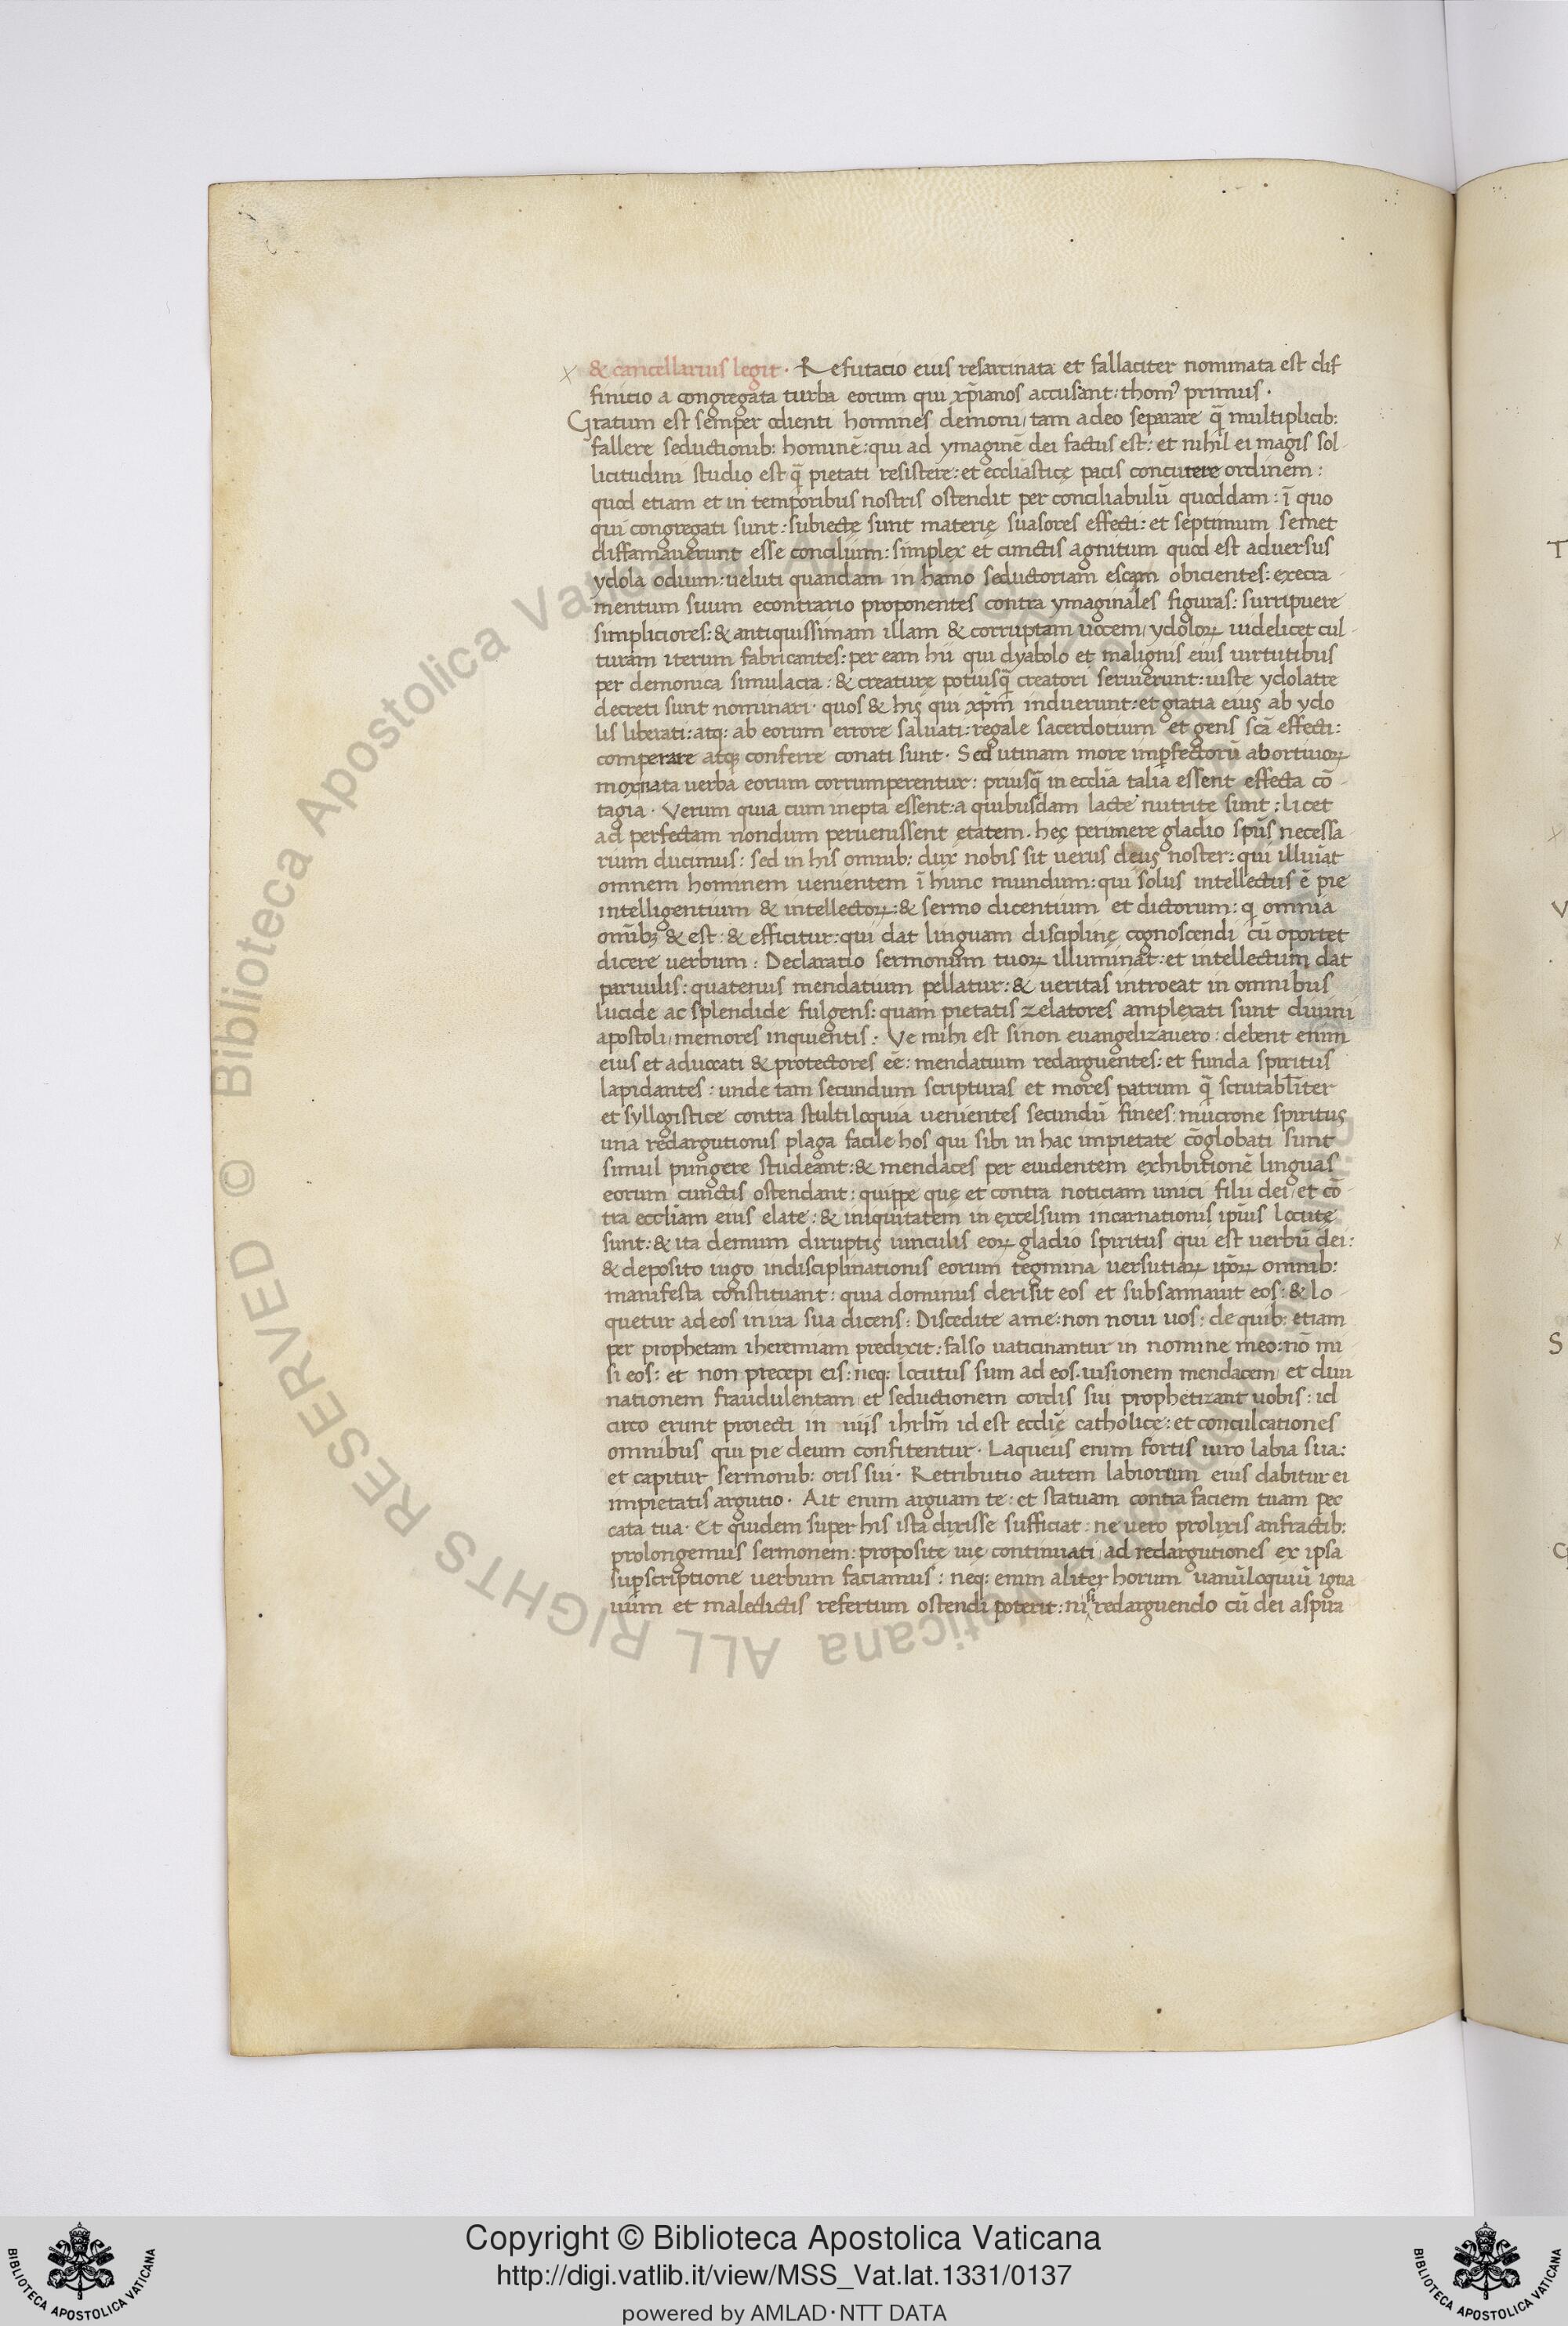 & cancellarius legit · Refutatio eius resarcinata et fallaciter nominata est dif
finitio a congregata turba eorum qui xp̄ianos accusant : thom᾽ primus ·
Gratum est semper odienti homines demoni / tam adeo separare q̄ multiplicib:
fallere seductionib: hominē : qui ad ymaginē dei factus est : et nihil ei magis sol-
licitudini studio est q̄ pietati resistere : et eccliasticę pacis concutere ordinem :
quod etiam et in temporibus nostris ostendit per conciliabulū quoddam : ī quo
qui congregati sunt : subiectę sunt materię suasores effecti : et septimum semet
diffamaverunt esse concilium : simplex et cunctis agnitum quod est adversus
ydola odium : veluti quandam in hamo seductoriam escam obicientes : execra
mentum suum econtrario proponentes contra ymaginales figuras : surripuere
simpliciores : & antiquissimam illam & corruptam vocem / ydoloꝝ videlicet cul-
turam iterum fabricantes : per eam hii qui dyabolo et malignis eius virtutibus
per demonica simulacra : & creaturę potiusq̄ creatori serviverunt : iuste ydolatre
decreti sunt nominari · quos & his qui xp̄m induerunt : et gratia eius ab ydo
lis liberati : atq: ab eorum errore salvati : regale sacerdotium et gens scā effecti :
comperare atq; conferre conati sunt · Sed utinam more imꝑfectorū abortivoꝝ
mox nata verba eorum corrumperentur : priusq̄ in eccliā talia essent effecta cō-
tagia · Verum quia cum inepta essent : a quibusdam lacte nutrite sunt : licet
ad perfectam nondum pervenissent etatem · hęc perimere gladio spūs necessa
rium ducimus : sed in his omnib: dux nobis sit verus deus noster : qui illuīat
omnem hominem venientem ī hunc mundum : qui solus intellectus ē pie
intelligentium & intellectoꝝ : & sermo dicentium et dictorum : q omnia
omīb; & est : & efficitur : qui dat linguam disciplinę cognoscendi cū oportet
dicere verbum : Declaratio sermonum tuoꝝ illuminat : et intellectum dat
parvulis : quatenus mendatium pellatur : & veritas introeat in omnibus
lucide ac splendide fulgens : quam pietatis zelatores amplexati sunt divini
apostoli / memores inquientis : Ve mihi est sinon evangelizavero : debent enim
eius et advocati & protectores eē : mendatium redarguentes : et funda spiritus
lapidantes : unde tam secundum scripturas et mores patrum q̄ scrutabl̄iter
et syllogistice contra stultiloquia venientes secundū finees : mucrone spiritus
una redargutionis plaga facile hos qui sibi in hac impietate cōglobati sunt
simul pungere studeant : & mendaces per evidentem exhibitionē linguas
eorum cunctis ostendant : quippe que et contra noticiam unici filii dei / et cō-
tra eccliam eius elate : & iniquitatem in excelsum incarnationis ip̄ius locute
sunt : & ita demum diruptis vinculis eoꝝ gladio spiritus qui est verbū dei :
& deposito iugo indisciplinationis eorum tegmina versutiaꝝ ip̄oꝝ omnib:
manifesta constituant : quia dominus derisit eos et subsannavit eos : & lo-
quetur ad eos in ira sua dicens : Discedite ame : non novi vos : de quib: etiam
per prophetam iheremiam predixit : falso vaticinantur in nomine meo : nō mi
si eos : et non precepi eis : neq: locutus sum ad eos · visionem mendacem / et divi
nationem fraudulentam / et seductionem cordis sui prophetizant vobis : id
circo erunt proiecti in viis ihrlm̄ id est eccliē catholice : et conculcationes
omnibus qui pie deum confitentur · Laqueus enim fortis viro labia sua :
et capitur sermonib: oris sui · Retributio autem labiorum eius dabitur ei
impietatis argutio · Ait enim arguam te : et statuam contra faciem tuam pec
cata tua · Et quidem super his ista dixisse sufficiat : ne vero prolixis anfractib:
prolongemus sermonem : proposite vie continuati / ad redargutiones ex ipsa
suꝑscriptione verbum faciamus : neq: enim aliter horum vanūloquiū igna
vum et maledictis refertum ostendi poterit : nisi redarguendo cū dei aspira
© Biblioteca Apostolica Vaticana ALL RIGHTS RESERVED
Copyright © Biblioteca Apostolica Vaticana
http://digi.vatlib.it/view/MSS_Vat.lat.1331/0137
powered by AMLAD·NTT DATA
BIBLIOTECA APOSTOLICA VATICANA
BIBLIOTECA APOSTOLICA VATICANA